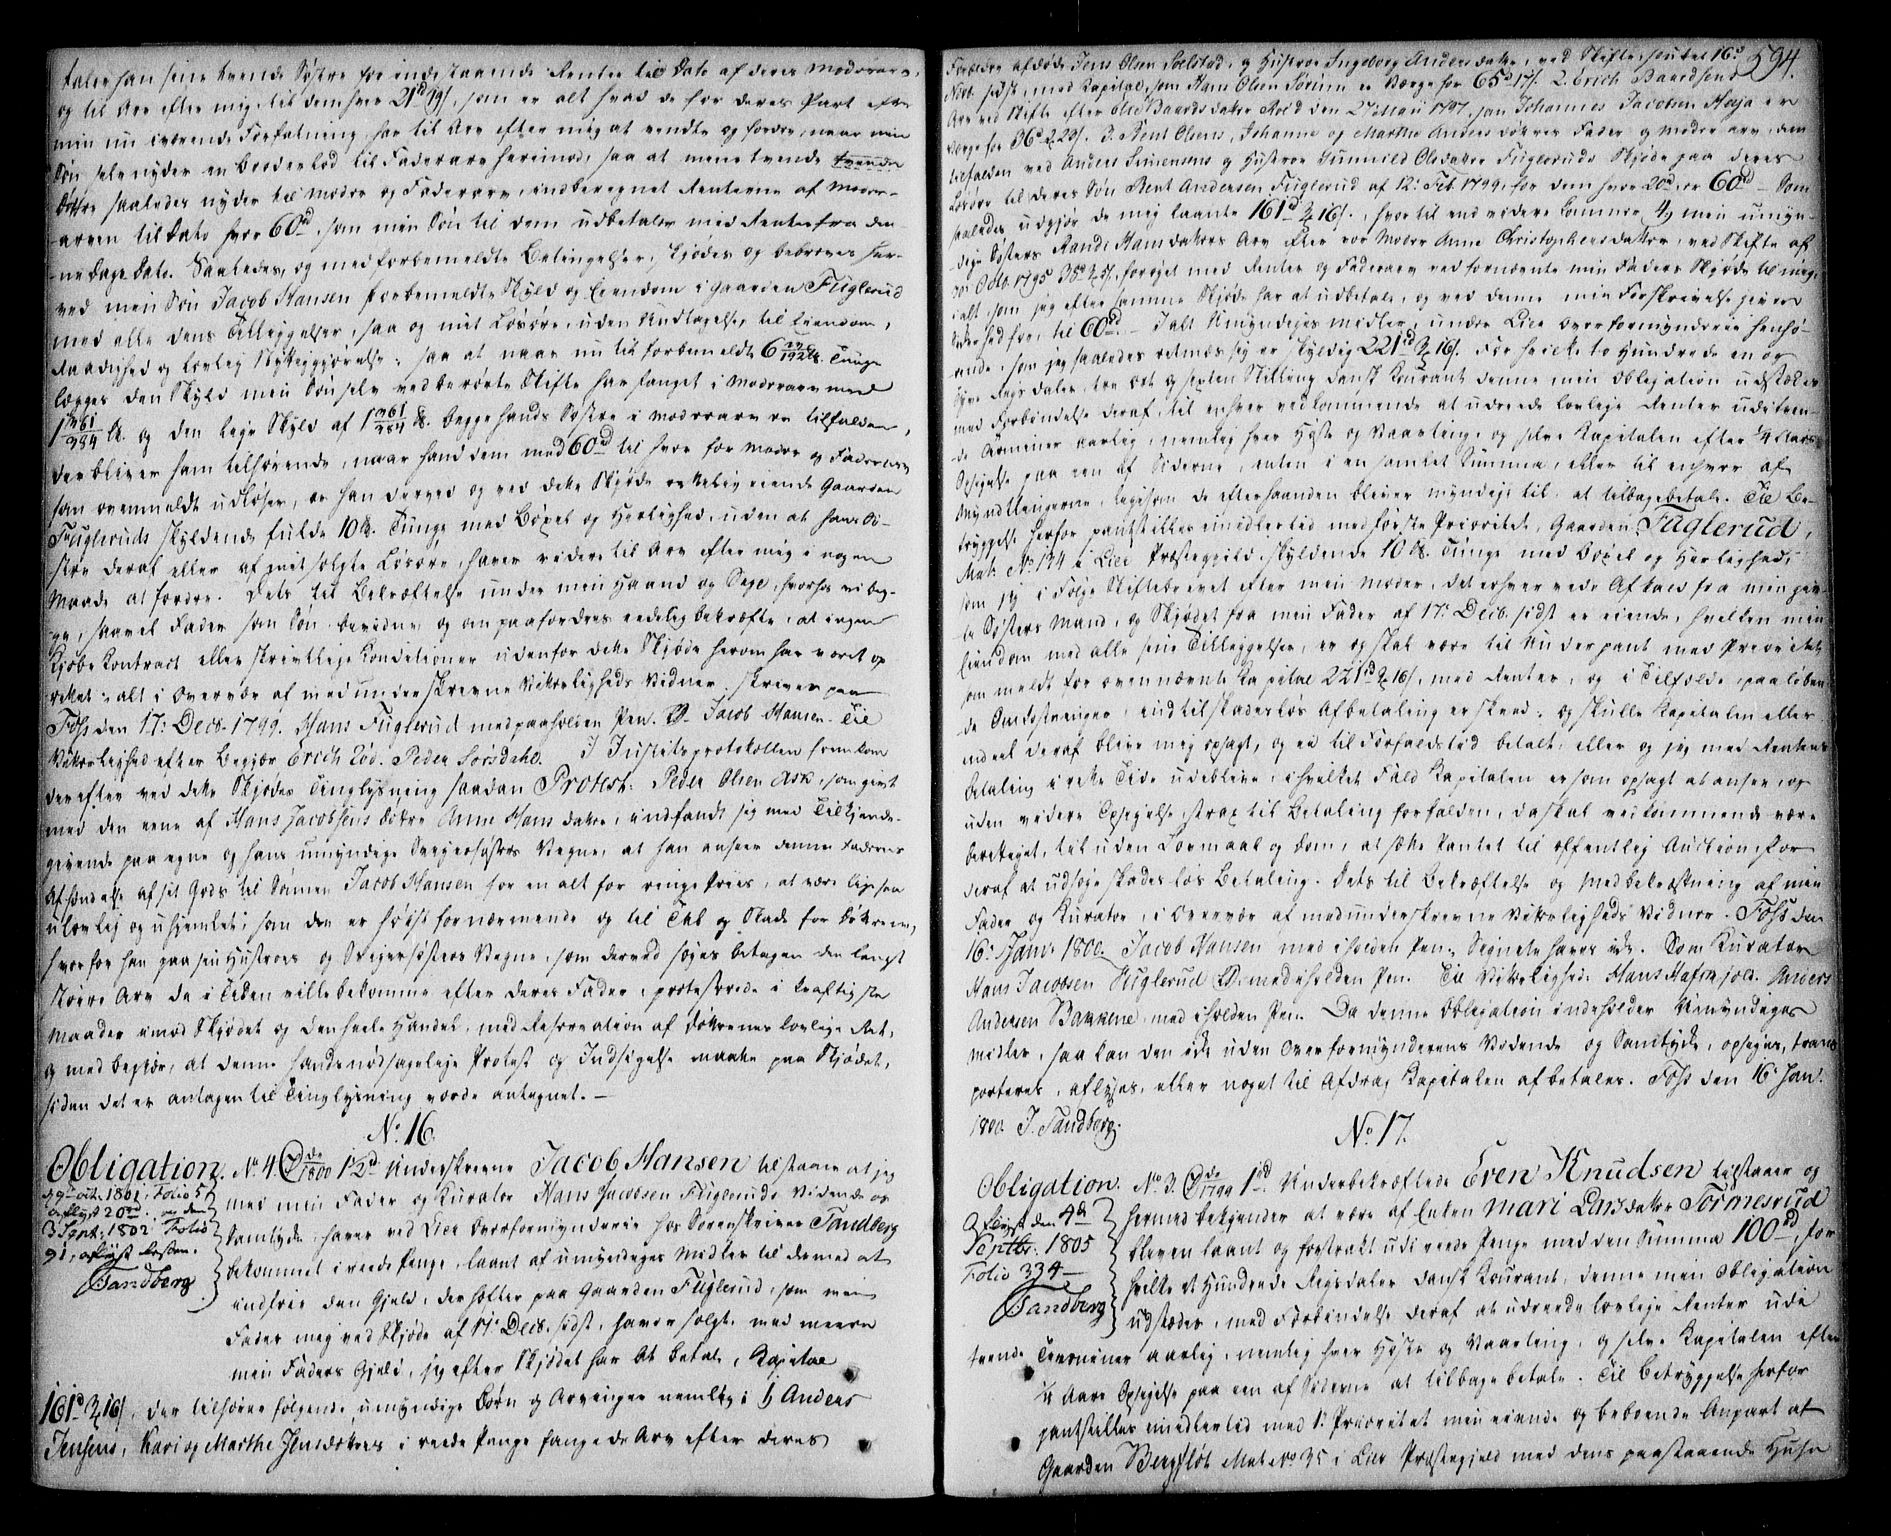 taler han sine tvende Søstre for inde staaende Renter til Dato af deres Modrearv,
og til Arv efter mig, til dem hver 21rd 19 s, som er alt hvad de for deres Part efter
min nu værende Forfatning, har til Arv efter mig at vendte og fordre, naar min
Søn selv nyder en broderlod til Faderarv herimod, saa at mine tvende
Døttre saaledes nyder til Modre og Faderarv, indberegnet Renterne af Modre-
arven til Dato hver 60rd, som min Søn til dem udbetaler med Renter fra den-
ne Dags Dato. Saaledes, og med forbemeldte Betingelser, skjødes og
ved min Søn Jacob Hansen forbemeldte Skyld og Eiendom i Gaarden Fuglerud
med alle dens Tilleggelser, saa og mit Løsøre, uden Undtagelse, til Eiendom,
Raadighed og lovlig saa at naar nu til forbemeldte 6 Tunge
lægges den Skyld min Søn selv ved berørte Skifte har fanget i Modrearv med
1 161/384 og den lige Skyld af 1 161/384 begge hands Søstre i Modrearv er tilfalden,
der bliver ham tilhørende, naar hand dem med 60rd til hver for Modre og Faderarv
som ovenmeldt udløser, er han derved og ved dette Skjøde eiende Gaarden
Fuglerud skyldende fulde 10 Tunge med Bøxel og Herlighed, uden at hans Sø-
stre deraf eller af mit solgte Løsøre, haver videre til Arv efter mig i nogen
Maade at fordre. Dets til Bekræftelse under min Haand og Segl, hvorhos vi beg-
ge, saavel Fader som Søn bevidne, og om paafordres eedelig bekræfte, at ingen
Kjøbe Kontract eller skrivtlige Konditioner udenfor dette Skjøde herom har været op
rettet; alt i Overvær af medunderskrevne Vitterligheds Vidner skriver paa
Foss den 17. Decb. 1799. Hans Fuglerud med paaholden Pen. Jacob Hansen. Til
Vitterlighed efter Begjær Erich Lød. Peder Sørsdahl. I Justitsprotokollen fremkom
derefter ved dette Skjødes Tinglysning saadan Protest: Peder Olsen Ask, som givt
med den eene af Hans Jacobsens Døttre Anne Hans datter, indfandt sig med Tilkjende-
givende paa egne og hans umyndige Svigersøsters Vegne, at han anseer denne Faderens
Afhendelse af sit Gods til Sønnen Jacob Hansen for en alt for ringe Priis, at være ligesaa
ulovlig og uhjemlet, som den er høist fornærmende og til Tab og Skade for Døttrene,
hvorfor han paa sin Hustroes og Svigersøsters Vegne, som derved søges betagen den langt
større Arv de i Tiden ville bekomme efter deres Fader, protesterede i kraftigste
Maader imod Skjødet og den heele Handel, med Reservation af Døttrenes lovlige Ret,
og med begjær, at denne hans nødsagelige Protest og Indsigelse maatte paa Skjødet,
siden det er antagen til Tinglysning vorde antegnet. —
No. 16.
Obligation. No. 4 de 1800 1½rd Underskrevne Jacob Hansen tilstaaer at jeg
1801, Folio 5
aflyst 20rd og den
3 Sept: 1802 Folio
91, aflyst Resten.
Sandberg
med min Fader og Kurator Hans Jacobsen Fugleruds Vidende og
Samtykke, haver ved Lier Overformynderie hos Sorenskriver Sandberg
bekommet i reede Penge, laant af umyndiges Midler til dermed at
indfrie den Gjeld, der hefter paa Gaarden Fuglerud, som min
Fader mig ved Skjøde af 17. Decb. sidst, haver solgt, med meere
min Faders Gjeld, jeg efter Skjødet har at betale, Kapital
161rd 3 16 s, der tilhører følgende umyndige Børn og Arvinger nemlig: 1) Anders
Jensens, Kari og Marthe Jensdøttres i reede Penge fangede Arv efter deres
594.
Forældre afdøde Jens Olsen Solstad, og Hustroe Ingeborg Anders datter, ved Skifte sluttet 16.
Novb. sidst, med Kapital, som Hans Olsen Sørum er Værge for 65rd 17 s. 2. Erich Baardsens
Arv ved Skifte efter Olse Baardsdatter Moe d den 27 Maii 1797, som Johannes Jacobsen Hesja er
Værge for 36rd 2 22 s. 3. Bent Olsens, Johanne og Marthe Anders døttres Fader og Modre arv, dem
tilfalden ved Anders Simensens og Hustroe Gunnild Olsdatter Fugleruds Skjøde paa deres
Løsøre til deres Søn Bent Andersen Fuglerud af 12. Feb. 1799, for dem hver 20rd, er 60rd — Som
saaledes udgjør de mig laante 161rd 3 16 s, hvortil end videre kommer 4) min umyn-
dige Søsters Randi Hansdatters Arv efter vor Moder Anne Christophersdatter, ved Skifte af
30 Octo. 1795 35rd 2 5 s, forøget med Renter og Faderarv ved fornævnte min Faders Skjøde til mig,
i alt, som jeg efter samme Skjøde har at udbetale, og ved denne min Forskrivelse giver
Sikkerhed for, til 60rd. Ialt Umyndiges midler, under Lier Overformynderie henhø-
rende, som jeg saaledes retmæssig er skyldig 221rd 3 16 s. For hvilke to Hundrede en og
tyve Rigsdaler, tre ort og sexten Skilling Dansk Kourant denne min Obligation udstædes
med Forbindelse deraf til enhver vedkommende at udreede lovlige Renter udi tven-
de Terminer aarlig, nemlig hver Høst og Vaarting, og selve Kapitalen efter ¼ Aars
Opsigelse paa een af Siderne, enten i en samlet Summa, eller til enhver af
Myndtlingerne, ligesom de efterhaanden bliver myndige til, at tilbagebetale. Til Be-
tryggelse herfor pantstilles imidlertid med første Prioritet, Gaarden Fuglerud,
Mat. No. 134 i Lier Præstegjeld, skyldende 10 Tunge med Bøxel og Herlighed,
som jeg i Følge Skiftebrevet efter min Moder, det erhvervede Afkald fra min gif-
te Søsters Mand, og Skjødet fra min Fader af 17. Decb. sidst er eiende, hvilken min
Eiendom med alle sine Tilleggelser, er og skal være til Underpant med Prioritet
som meldt for ovennævnte Kapital 221rd 3 16 s, med Renter, og i Tilfælde paaløben-
de Omkostninger, indtil skadesløs Afbetaling er skeed; og skulle Kapitalen eller
endeel deraf blive mig opsagt, og ei til Forfaldstid betalt, eller og jeg med Rentens
betaling i rette Tide udeblive, i hvilket Fald Kapitalen er som opsagt at ansee, og
uden videre Opsigelse strax til Betaling forfalden, da skal vedkommende være
berettiget, til uden Lovmaal og Dom, at sætte Pantet til offentlig Auction, for
deraf at udsøge skadesløs Betaling. Dets til Bekræftelse og Medbekræftning af min
Fader og Kurator, i Overvær af medunderskrevne Vitterligheds Vidner. Foss den
16. Janv. 1800. Jacob Hansen med iholden Pen. Signete haves ikke. Som Kurator
Hans Jacobsen Fuglerud med iholden Pen. Til Vitterlighed: Hans Anders
Andersen Bakkene med iholden Pen. Da denne Obligation indeholder Umyndiges
midler, saa kan den ikke uden Overformynderens Vidende og Samtykke, opsiges, trans
porteres, aflyses, eller noget til Afdrag Kapitalen afbetales. Foss den 16 Jan.
1800. J. Sandberg.
No. 17.
Obligation. No. 3. de 1799 1rd. Underbekræftede Even Knudsen tilstaaer og
Aflyst den 4de
Septbr. 1805
Folio 334 —
Sandberg
hermed bekjender at være af Enken Mari Larsdatter Tormesrud
bleven laant og forstrakt udi reede Penge med den Summa 100rd, for
hvilke et Hundrede Rigsdaler Dansk Kourant, denne min Obligation
udstædes, med Forbindelse deraf at udreede lovlige Renter udi
tvende Terminer aarlig, nemlig hver Høst og Vaarting, og selve Kapitalen efter
¼ Aars Opsigelse paa een af Siderne at tilbagebetale. Til betryggelse herfor
pantstilles imidlertid med 1. Prioritet min eiende og beboende Anpart af
Gaarden Bergflot Mat. No. 35 i Lier Præstegjeld med dens paastaaende Huse